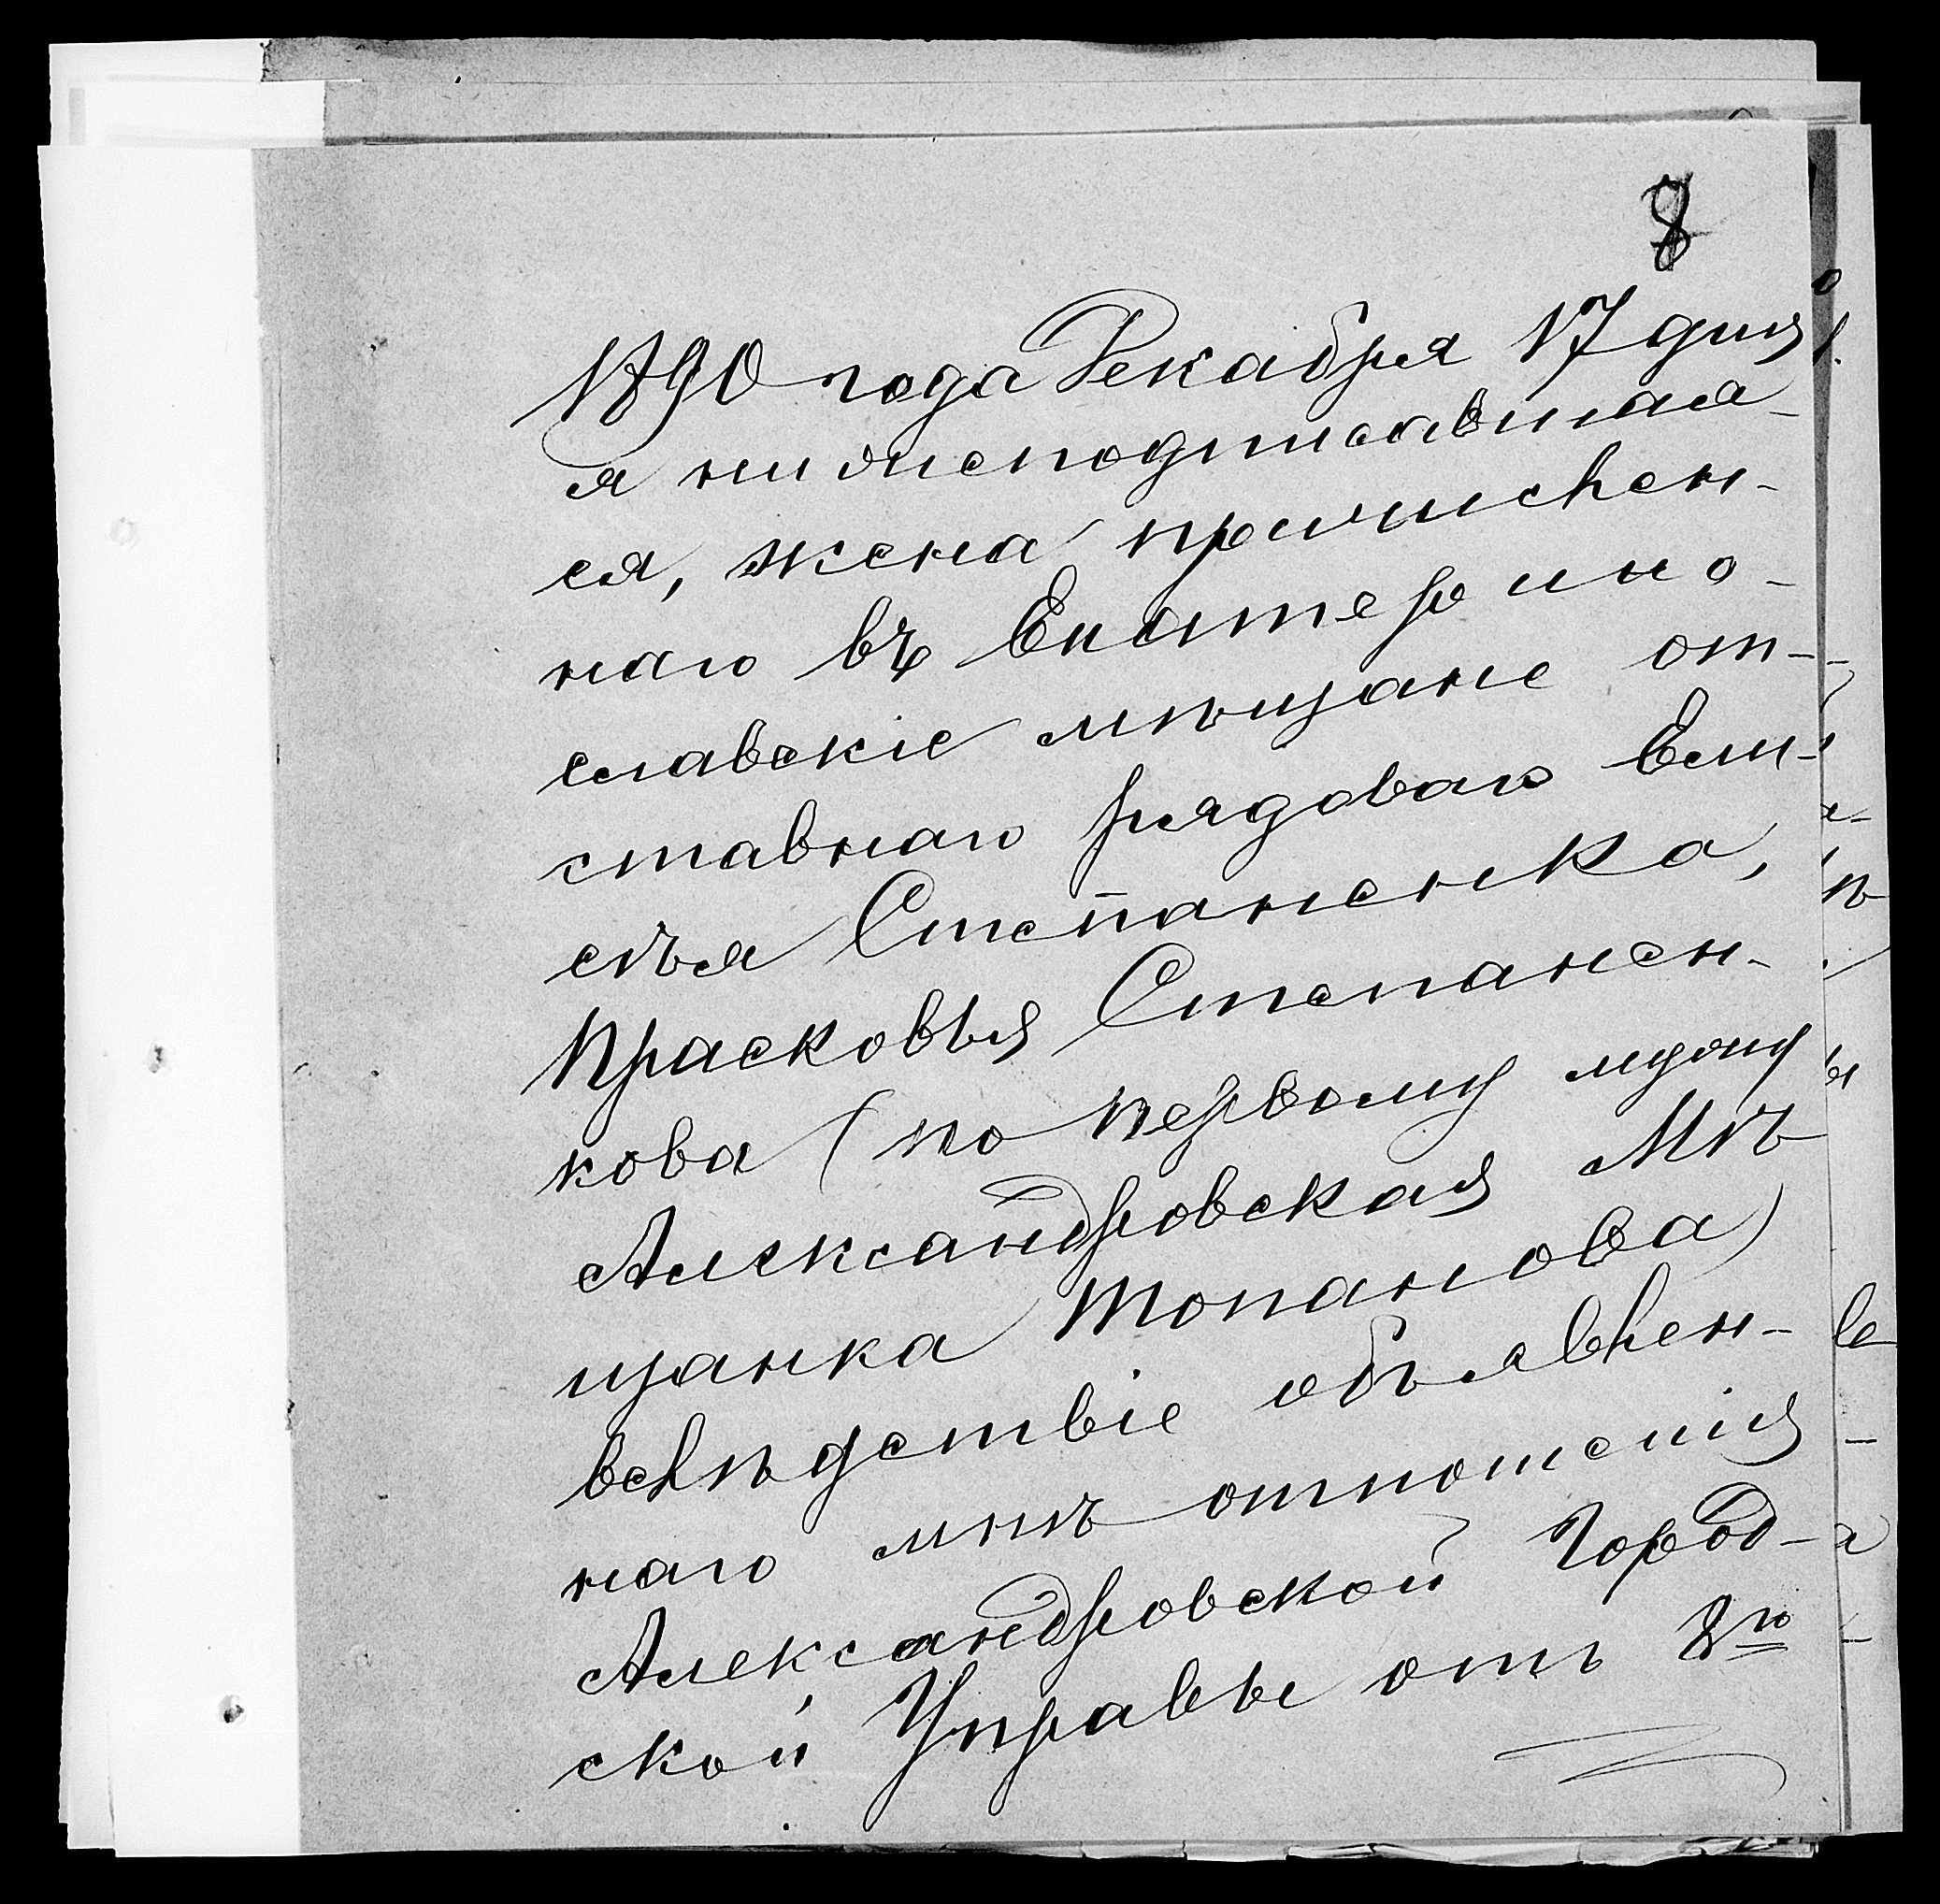 8
1890 года Декабря 17 дня
я нижеподписавшая-
ся, жена причислен-
наго въ Екатерино-
славскіе мѣщане от-
ставнаго рядоваго Ели-
сѣя Степаненка,
Прасковья Степанен-
кова (по первому мужу
Александровская Мѣ
щанка Топанова)
вслѣдствіе объявлен-
наго мнѣ отношенія
Александровской Город-
ской Управы отъ 8го